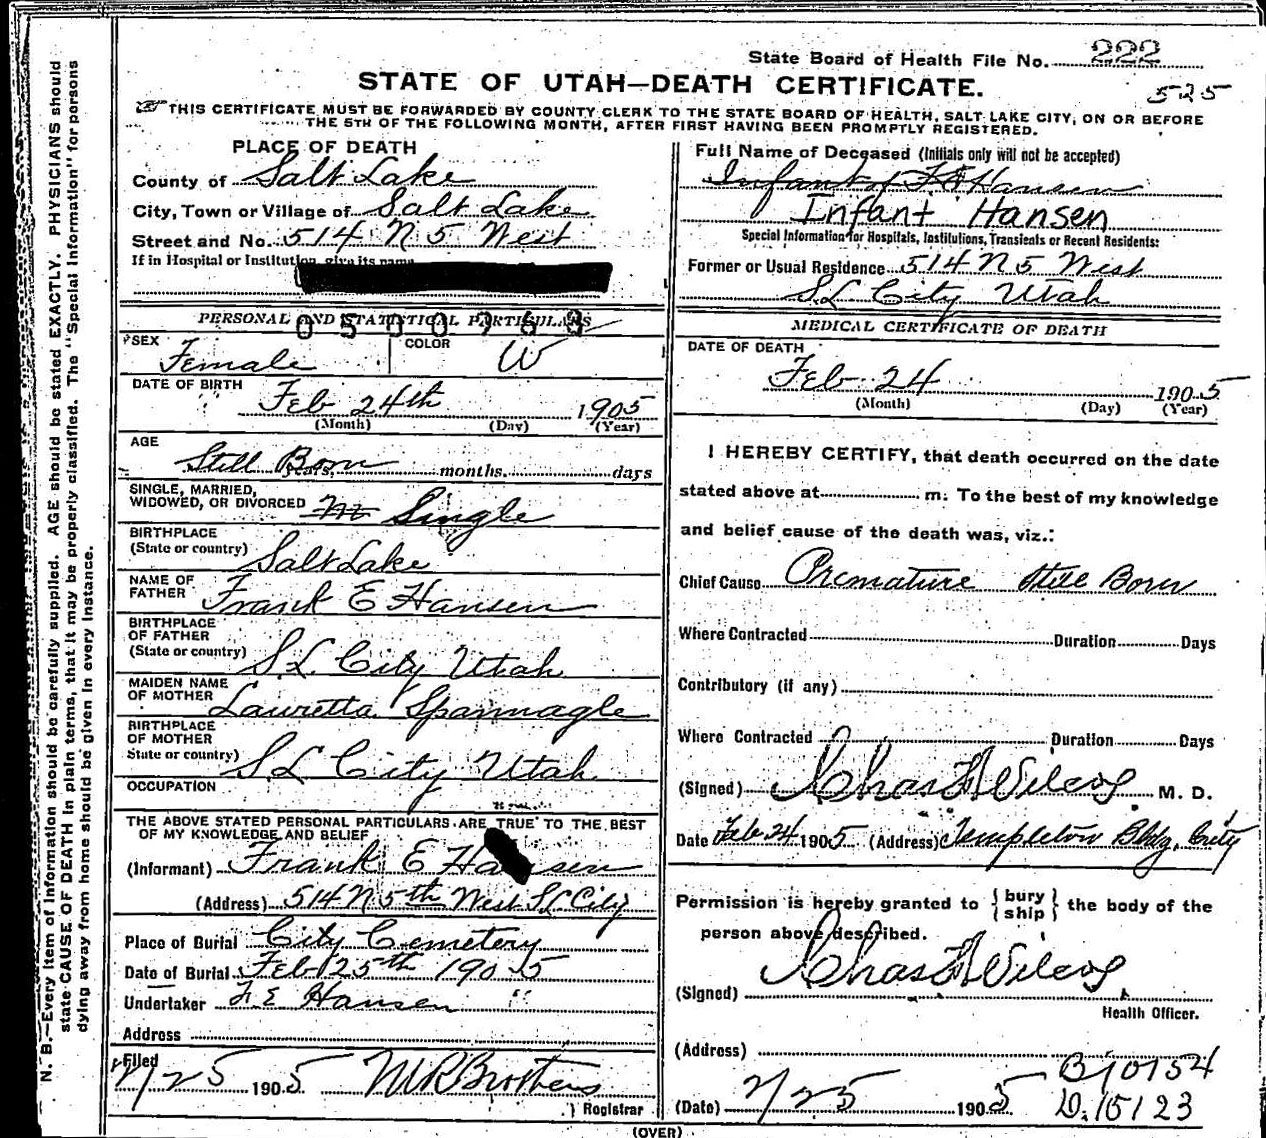 State Board of Health File No. 222
STATE OF UTAH—DEATH CERTIFICATE.
525
THIS CERTIFICATE MUST BE FORWARDED BY COUNTY CLERK TO THE STATE BOARD OF HEALTH, SALT LAKE CITY, ON OR BEFORE
THE 5TH OF THE FOLLOWING MONTH, AFTER FIRST HAVING BEEN PROMPTLY REGISTERED.
PLACE OF DEATH
County of Salt Lake
City, Town or Village of Salt Lake
Street and No. 514 N 5 West
If in Hospital or Institution, give its name
PERSONAL AND STATISTICAL PARTICULARS
0500763
SEX Female COLOR W
DATE OF BIRTH
Feb 24th 1905
(Month) (Day) (Year)
AGE
Still Born years, months, days
SINGLE, MARRIED,
WIDOWED, OR DIVORCED Single
BIRTHPLACE
(State or country) Salt Lake
NAME OF
FATHER Frank E Hansen
BIRTHPLACE
OF FATHER
(State or country) S L City Utah
MAIDEN NAME
OF MOTHER Lauretta Spannagle
BIRTHPLACE
OF MOTHER
State or country) S L City Utah
OCCUPATION
THE ABOVE STATED PERSONAL PARTICULARS ARE TRUE TO THE BEST
OF MY KNOWLEDGE AND BELIEF
(Informant) Frank E Hansen
(Address) 514 N 5th West S L City
Place of Burial City Cemetery
Date of Burial Feb 25th 1905
Undertaker F E Hansen "
Address
Filed
2/25 1905 M R Brothers
Registrar
Full Name of Deceased (Initials only will not be accepted)
Infant of F E Hansen
Infant Hansen
Special Information for Hospitals, Institutions, Transients or Recent Residents:
Former or Usual Residence 514 N 5 West
S L City Utah
MEDICAL CERTIFICATE OF DEATH
DATE OF DEATH
Feb 24 1905
(Month) (Day) (Year)
I HEREBY CERTIFY, that death occurred on the date
stated above at m. To the best of my knowledge
and belief cause of the death was, viz.:
Chief Cause Premature Still Born
Where Contracted Duration Days
Contributory (if any)
Where Contracted Duration Days
(Signed) Chas F Wilcox M. D.
Date Feb 24 1905 (Address) Templeton Bldg, City
Permission is hereby granted to {bury
ship} the body of the
person above described.
(Signed) Chas F Wilcox
Health Officer.
(Address)
B10154
(Date) 2/25 1905 D.15123
(OVER)
N. B.—Every item of information should be carefully supplied. AGE should be stated EXACTLY. PHYSICIANS should
state CAUSE OF DEATH in plain terms, that it may be properly classified. The "Special Information" for persons
dying away from home should be given in every instance.